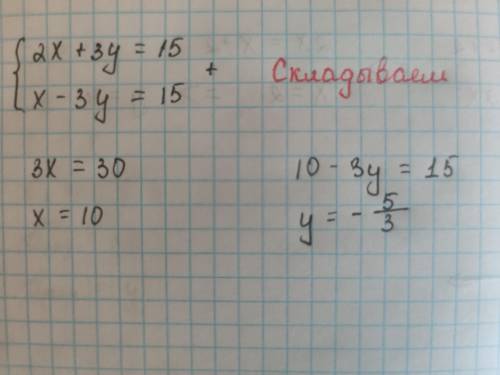 2x + 3y = 15
x - 3y = 15
+
Складываем
3x = 30
x = 10
10 - 3y = 15
y = - 5/3